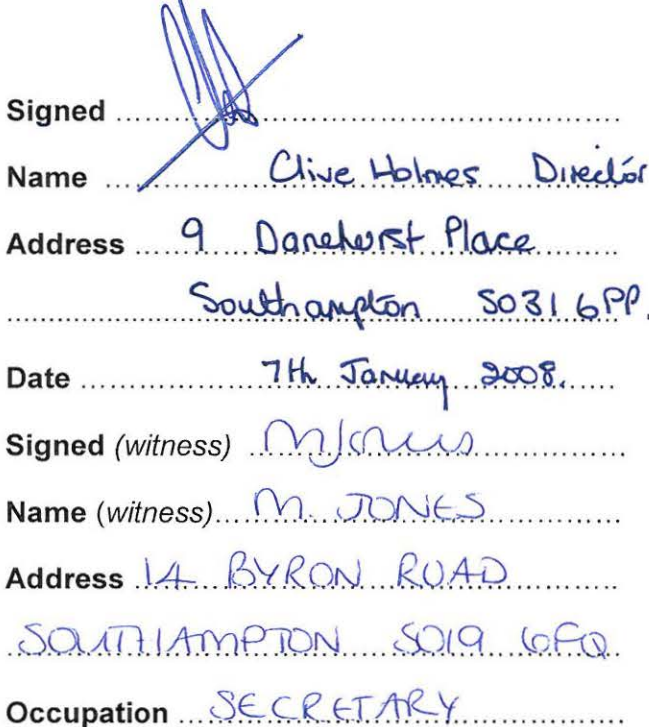 Signed
Name Clive Holmes Director
Address 9 Danehurst Place
Southampton SO31 6PP.
Date 7th January 2008.
Signed (witness) MJones
Name (witness) M. JONES
Address 14 BYRON ROAD
SOUTHAMPTON SO19 6FQ
Occupation SECRETARY